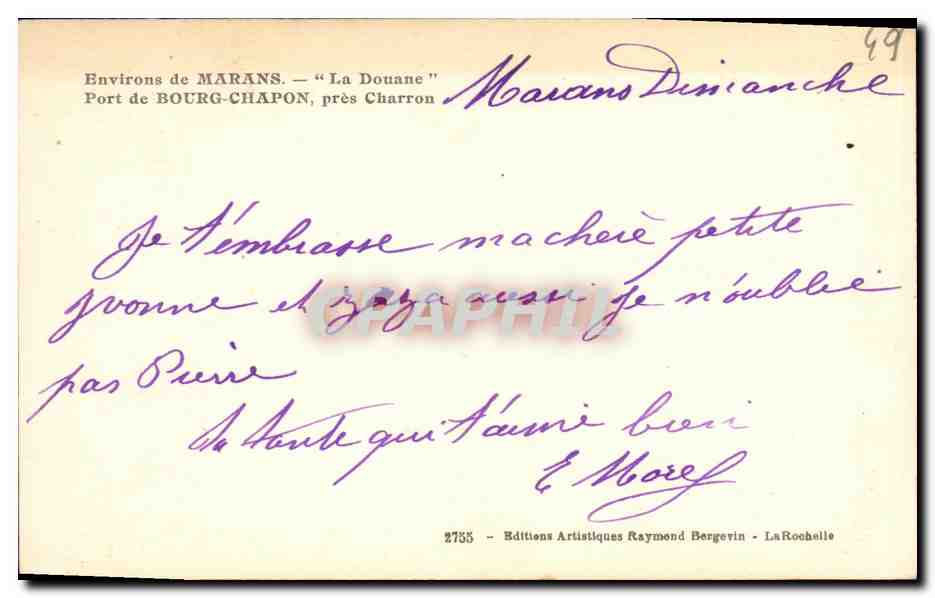 49
Environs de MARANS. — "La Douane"
Port de BOURG-CHAPON, près Charron
Marans Dimanche
Je t'embrasse ma chère petite
yvonne et zaza aussi je n'oublie
pas Pierre
ta tante qui t'aime bien
E Morel
CPAPHIL
2755 - Editions Artistiques Raymond Bergevin - La Rochelle